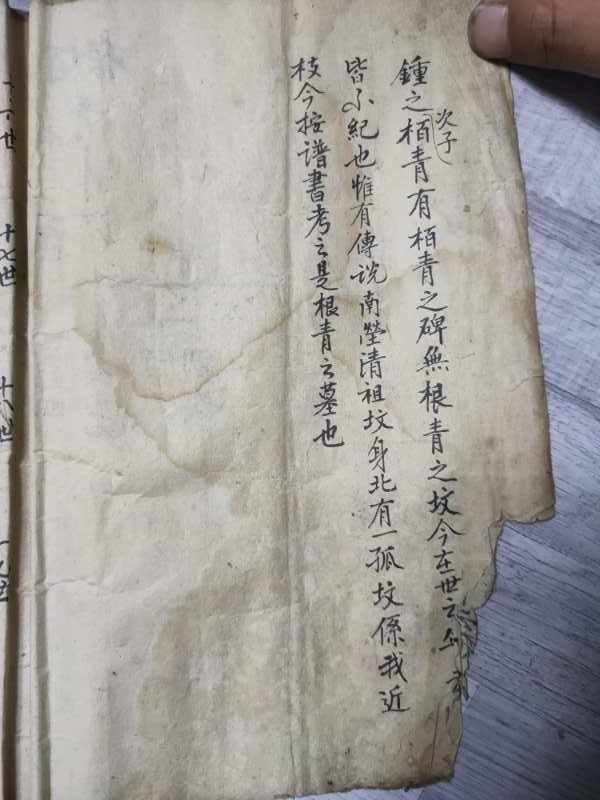 鍾之栢青有栢青之碑無根青之坟今在世之
次子
皆不紀也惟有傳说南塋清祖坟身北有一孤坟係我近
枝今按谱書考之是根青之墓也
十七世
十八世